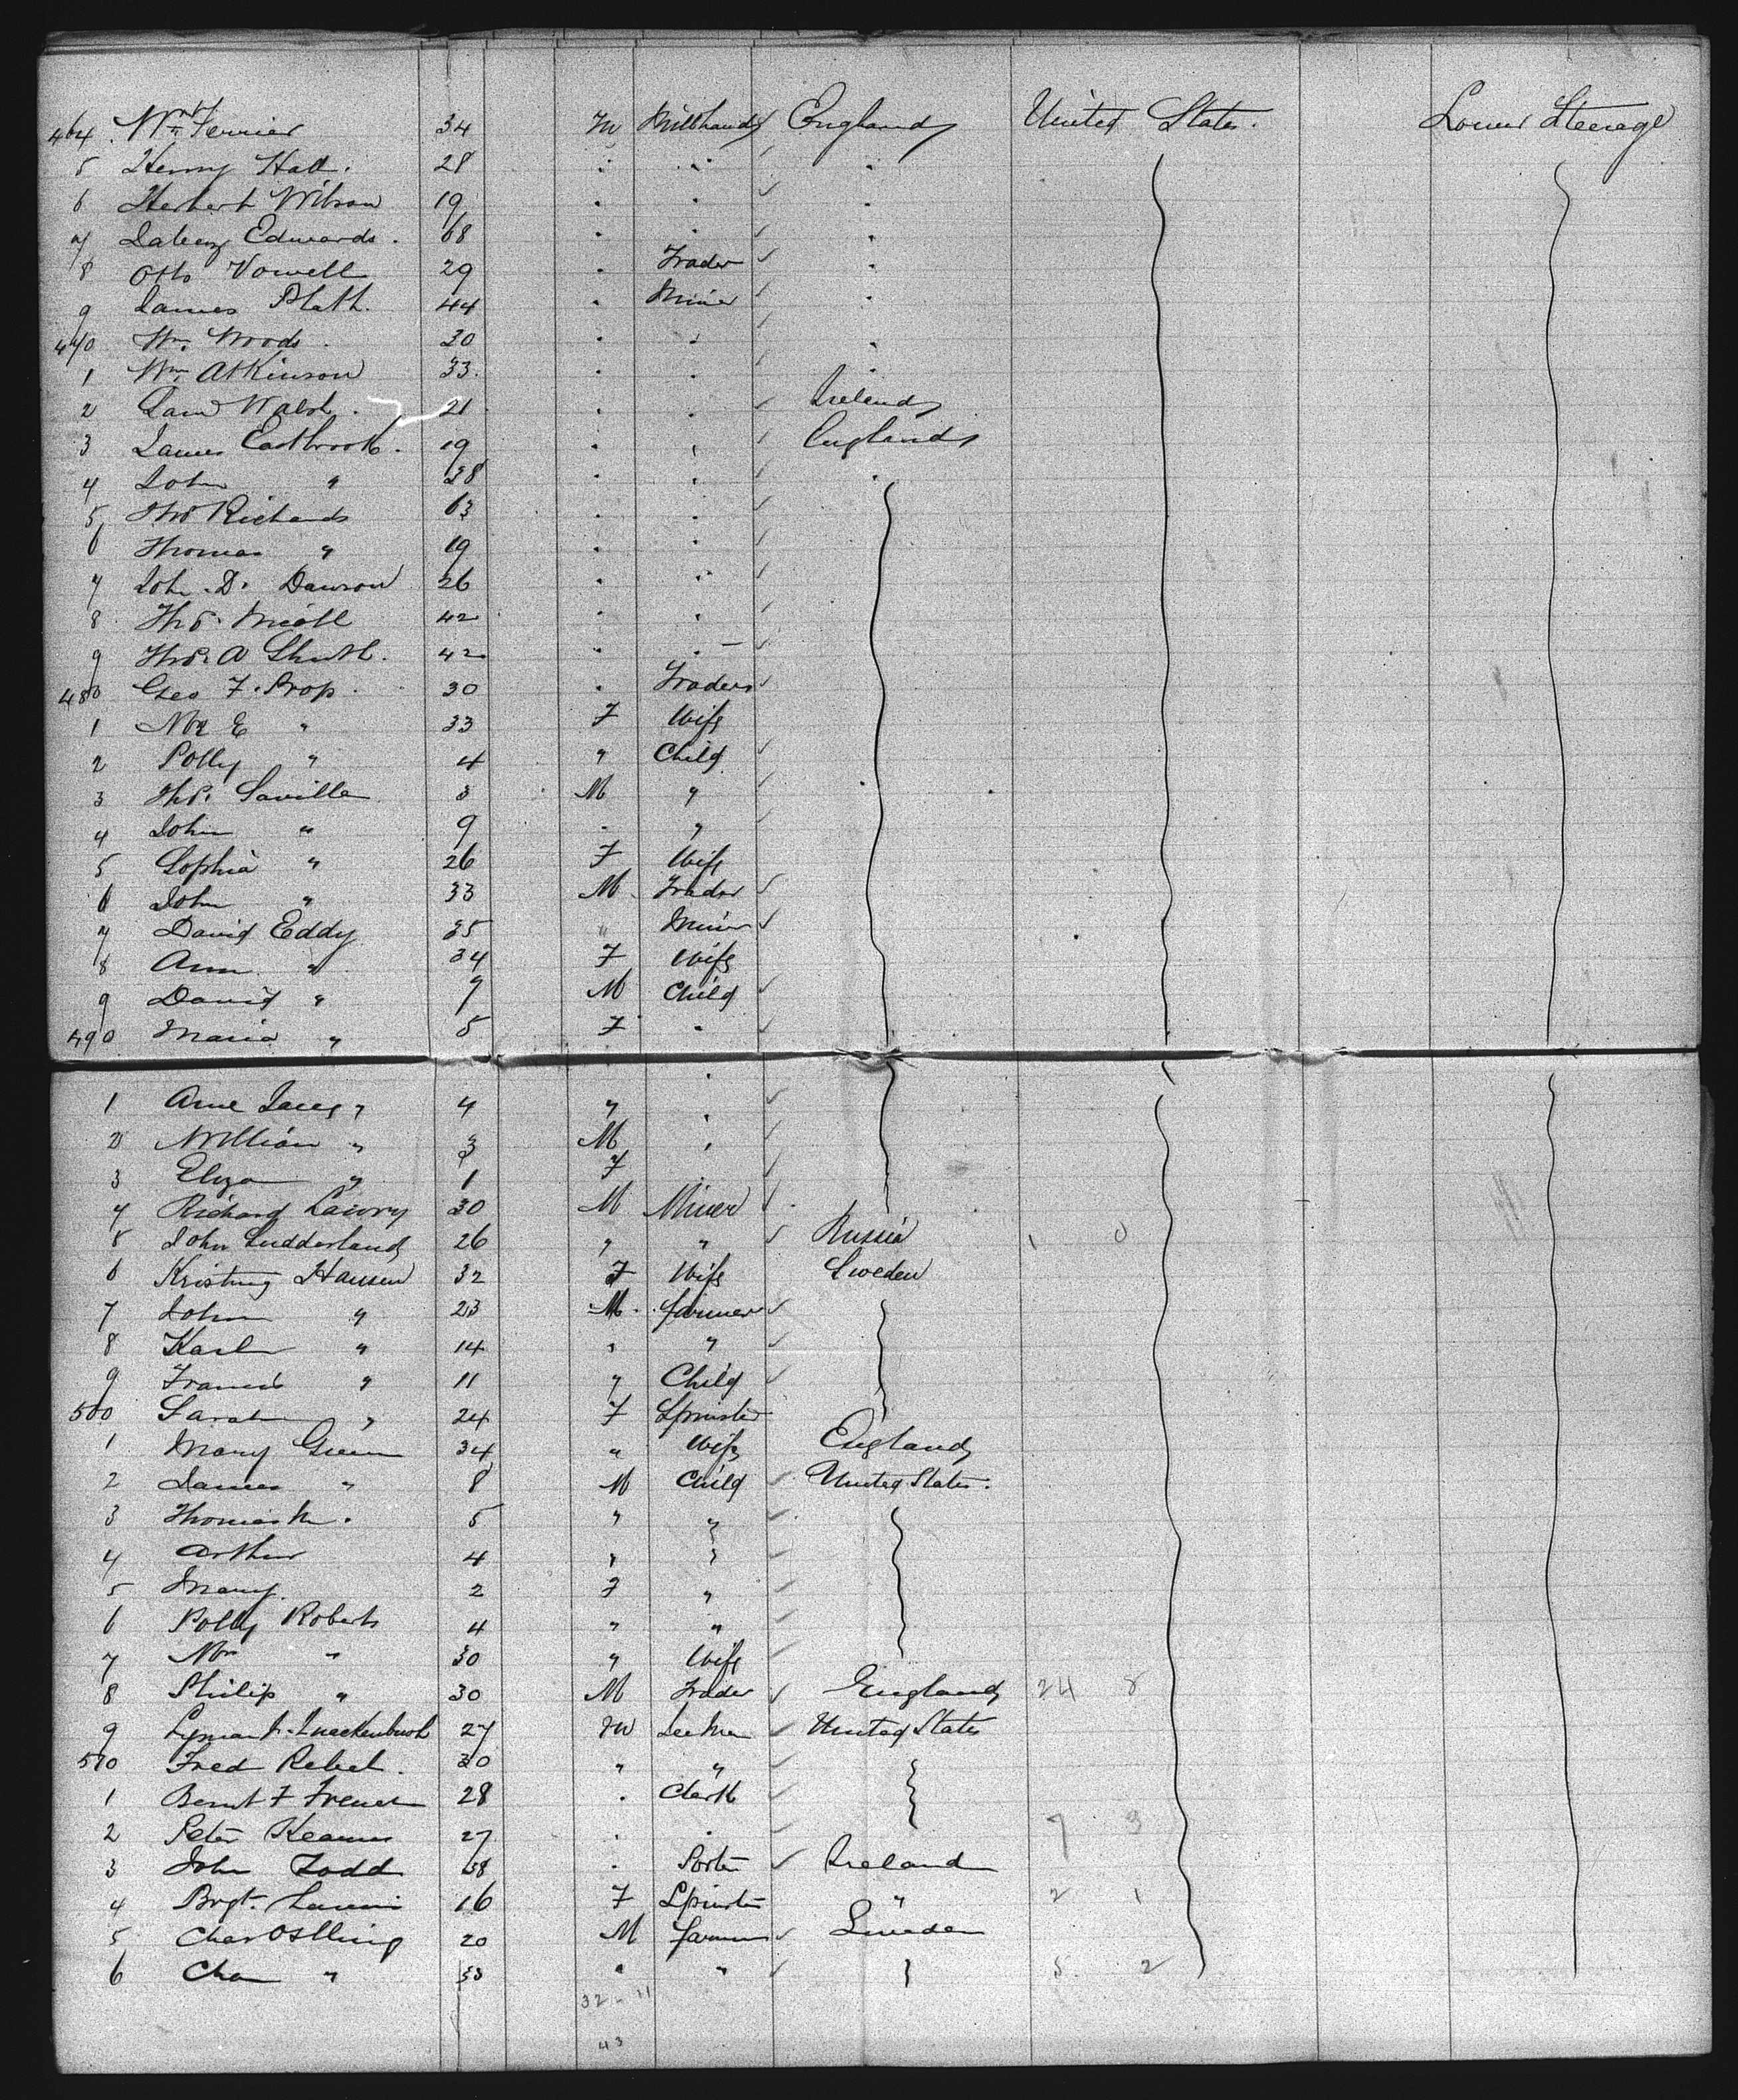 464 Wm Ferrier 34 M Millhand England United States. Lower Steerage
5 Henry Hall. 28 " " "
6 Herbert Wilson 19 " " "
7 Jabeny Edwards. 68 " " "
8 Otto Vowell 29 " Trader "
9 James Plath. 44 " Miner "
470 Wm Woods. 30 " " "
1 Wm Atkinson 33. " " "
2 Walsh. 21 " " Ireland
3 James Eastbrook. 19 " " England
4 John " 28 " " "
5 Thos Richards 63 " "
6 Thomas " 19 " "
7 John. D. Dawson 26 " "
8 Thos. 42 " "
9 Thos. A 42 " "
480 Geo F. Prop. 30 " Trader
1 Mrs E " 33 F Wife
2 Polly " 4 " Child
3 Thos. Saville 3 M "
4 John " 9 " "
5 Sophia " 26 F Wife
6 John " 33 M Trader
7 David Eddy 35 " Miner
8 Ann " 34 F Wife
9 David " 7 M Child
490 Maria " 5 F "
1 Ane " 4 " "
2 William " 3 M "
3 Eliza " 1 F
4 Richard Lawry 30 M Miner
5 John Sudderland 26 " " Russia 1 0
6 Hansen 32 F Wife Sweden
7 John " 23 M. farmer
8 Karl " 14 " "
9 Francis " 11 " Child
500 Sarah " 24 F Spinster
1 Mary Green 34 " Wife England
2 James " 8 M Child United States.
3 Thomas M. 5 " "
4 Arthur 4 " "
5 Mary 2 F "
6 Polly Roberts 4 " "
7 Mrs " 30 " Wife
8 Philip " 30 M Trader England 24 8
9 Lyman Quackenbush 27 M United States
510 Fred Rebel. 30 " "
1 F French 28 " Clerk
2 Peter Kearns 27 " " 7 3
3 John Todd 38 " Porter Ireland
4 Brgt. 16 F Spinster " 2 1
5 Chas Ostling 20 M farmer Sweden
6 Cha " 33 " " 5 2
32-11
43